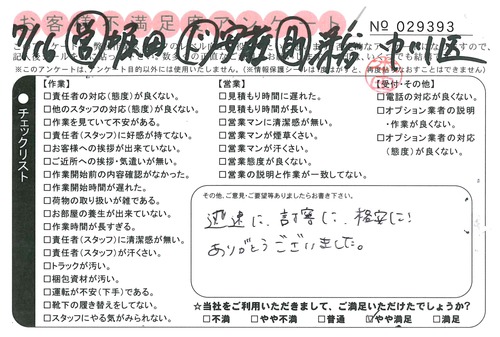 お客様不満足度アンケート
No 029393
※このアンケートは、アンケート目的以外には使用いたしません。(※情報保護シールは1度はがすと、再度貼りなおすことはできません)
チェックリスト
【作業】
□責任者の対応(態度)が良くない。
□他のスタッフの対応(態度)が良くない。
□作業を見ていて不安がある。
□責任者(スタッフ)に好感が持てない。
□お客様への挨拶が出来ていない。
□ご近所への挨拶・気遣いが無い。
□作業開始前の内容確認がなかった。
□作業開始時間が遅れた。
□荷物の取り扱いが雑である。
□お部屋の養生が出来ていない。
□作業時間が長すぎる。
□責任者(スタッフ)に清潔感が無い。
□責任者(スタッフ)が汗くさい。
□トラックが汚い。
□梱包資材が汚い。
□運転が不安(下手)である。
□靴下の履き替えをしてない。
□スタッフにやる気がみられない。
【営業】
□見積もり時間に遅れた。
□見積もり時間が長い。
□営業マンに清潔感が無い。
□営業マンが煙草くさい。
□営業マンが汗くさい。
□営業態度が良くない。
□営業の説明と作業が一致してない。
【受付・その他】
□電話の対応が良くない。
□オプション業者の説明
・作業が良くない。
□オプション業者の対応
(態度)が良くない。
その他、ご意見・ご要望等ありましたらお書き下さい。
迅速に、丁寧に、格安に!
ありがとうございました。
☆当社をご利用いただきまして、ご満足いただけたでしょうか?
□不満 □やや不満 □普通 ☑やや満足 □満足